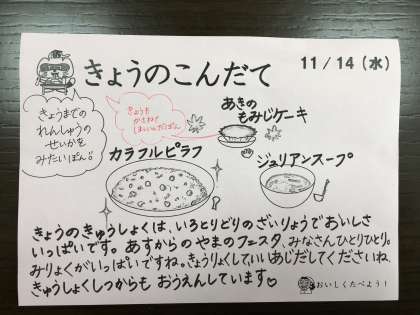 きょうのこんだて
11/14(水)
きょうまでの
れんしゅうの
せいかを
みたいぽん。
あきの
もみじケーキ
カラフルピラフ
ジュリアンスープ
きょうのきゅうしょくは、いろとりどりのざいりょうでおいしさ
いっぱいです。あすからのやまのフェスタ、みなさんひとりひとり。
みりょくがいっぱいですね。きょうりょくして、いいあじだしてくださいね。
きゅうしょくしつからも おうえんしています♡
おいしくたべよう!